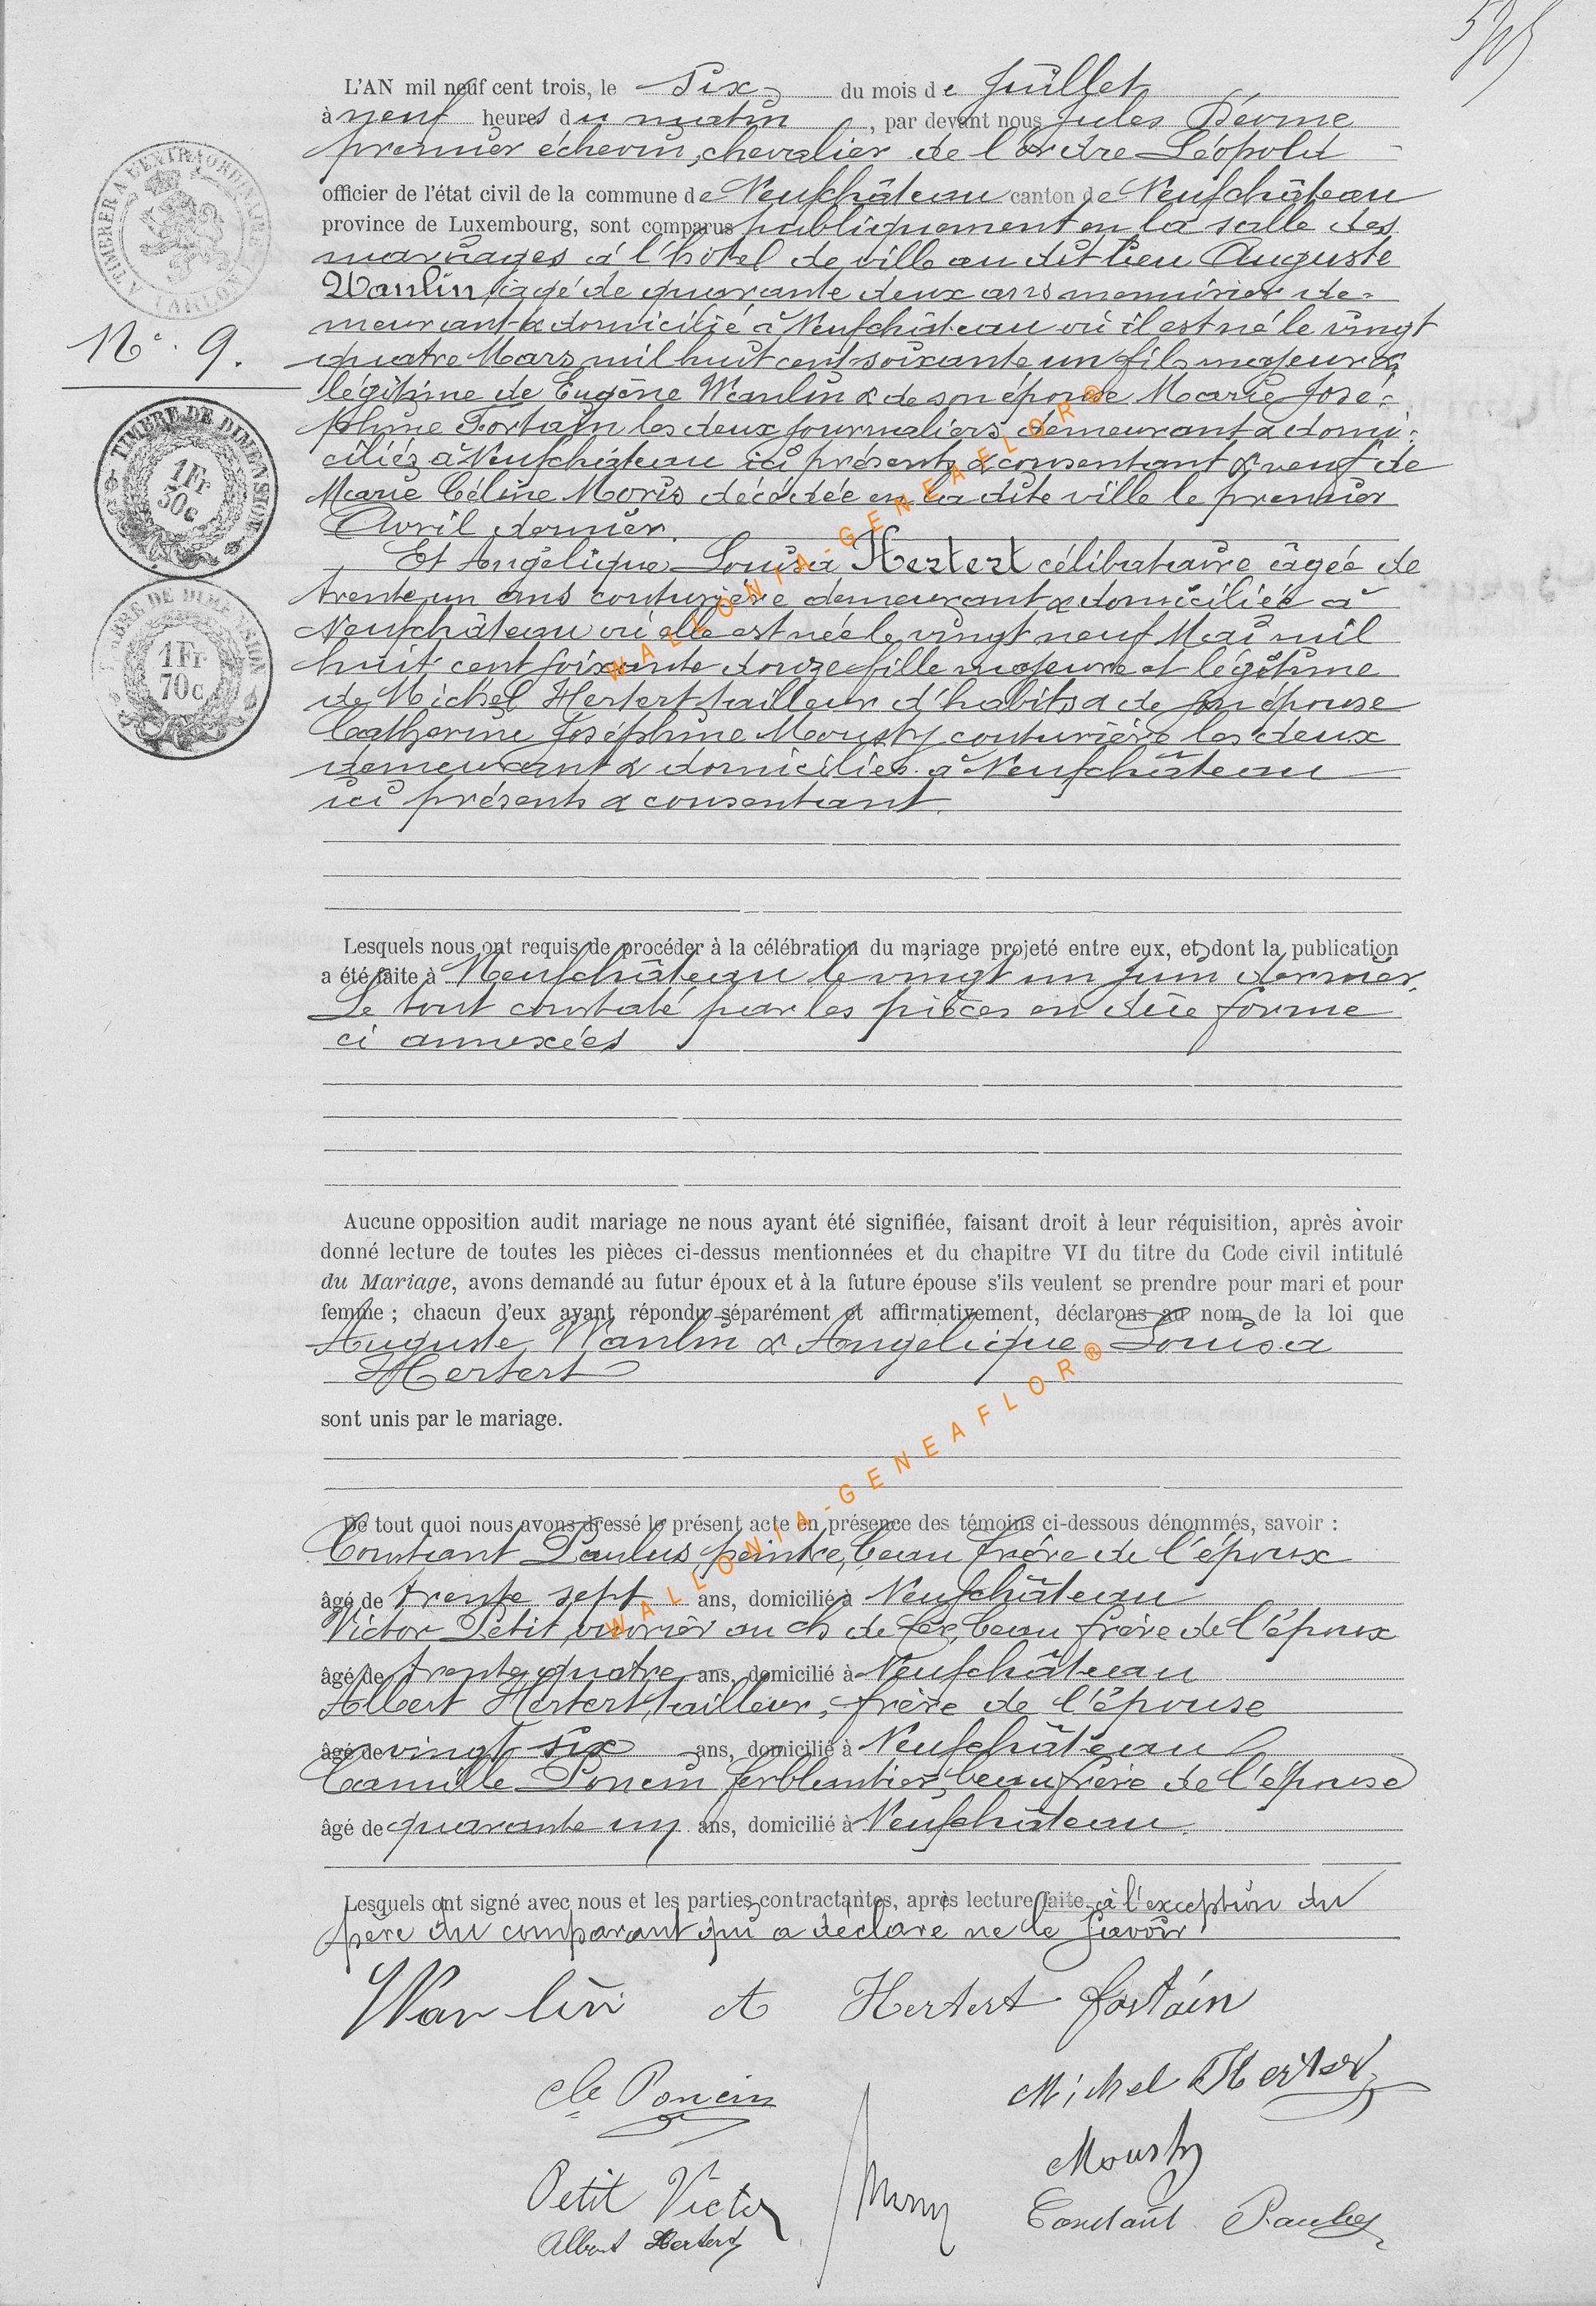 L'AN mil neuf cent trois, le Six du mois de Juillet
à neuf heures du matin, par devant nous Jules
premier échevin, chevalier de l'ordre Léopold
officier de l'état civil de la commune de Neufchâteau canton de Neufchâteau
province de Luxembourg, sont comparus publiquement en la salle des
mariages à l'hôtel de ville au dit lieu Auguste
Wanlin, âgé de quarante deux ans menuisier de=
meurant & domicilié à Neufchâteau où il est né le vingt
quatre Mars mil huit cent soixante un fils majeur &
N°. 9.
légitime de Eugène Wanlin & de son épouse Marie José=
phine Fortain les deux journaliers demeurant & domi=
ciliés à Neufchâteau ici présents & consentant & veuf de
Marie Céline Moris décédée en la dite ville le premier
Avril dernier.
TIMBRE DE DIMENSION
1 Fr
30c
Et Angélique Louisa Hertert célibataire âgée de
trente un ans couturière demeurant & domiciliée à
Neufchâteau où elle est née le vingt neuf Mai mil
huit cent soixante douze fille majeure et légitime
de Michel Hertert tailleur d'habits & de son épouse
Catherine Joséphine Mousty couturière les deux
demeurant & domiciliés à Neufchâteau
ici présents & consentant.
TIMBRE DE DIMENSION
1 Fr
70c
WALLONIA-GENEAFLOR®
Lesquels nous ont requis de procéder à la célébration du mariage projeté entre eux, et dont la publication
a été faite à Neufchâteau le vingt un Juin dernier.
Le tout constaté par les pièces en due forme
ci annexées
Aucune opposition audit mariage ne nous ayant été signifiée, faisant droit à leur réquisition, après avoir
donné lecture de toutes les pièces ci-dessus mentionnées et du chapitre VI du titre du Code civil intitulé
du Mariage, avons demandé au futur époux et à la future épouse s'ils veulent se prendre pour mari et pour
femme ; chacun d'eux ayant répondu séparément et affirmativement, déclarons au nom de la loi que
Auguste Wanlin & Angélique Louisa
Hertert
sont unis par le mariage.
WALLONIA-GENEAFLOR®
De tout quoi nous avons dressé le présent acte en présence des témoins ci-dessous dénommés, savoir :
Constant Paulus, peintre, beau frère de l'époux
âgé de trente sept ans, domicilié à Neufchâteau
Victor Petit, ouvrier au ch de fer, beau frère de l'époux
âgé de trente quatre ans, domicilié à Neufchâteau
Albert Hertert, tailleur, frère de l'épouse
âgé de vingt six ans, domicilié à Neufchâteau
Camille Poncin ferblantier, beau frère de l'épouse
âgé de quarante un ans, domicilié à Neufchâteau
Lesquels ont signé avec nous et les parties contractantes, après lecture faite à l'exception du
père du comparant qui a déclaré ne le savoir
Wanlin A Hertert fortain
Cle Poncin Michel Herter
Mousty
Petit Victor
Constant Paulus
Albert Hertert